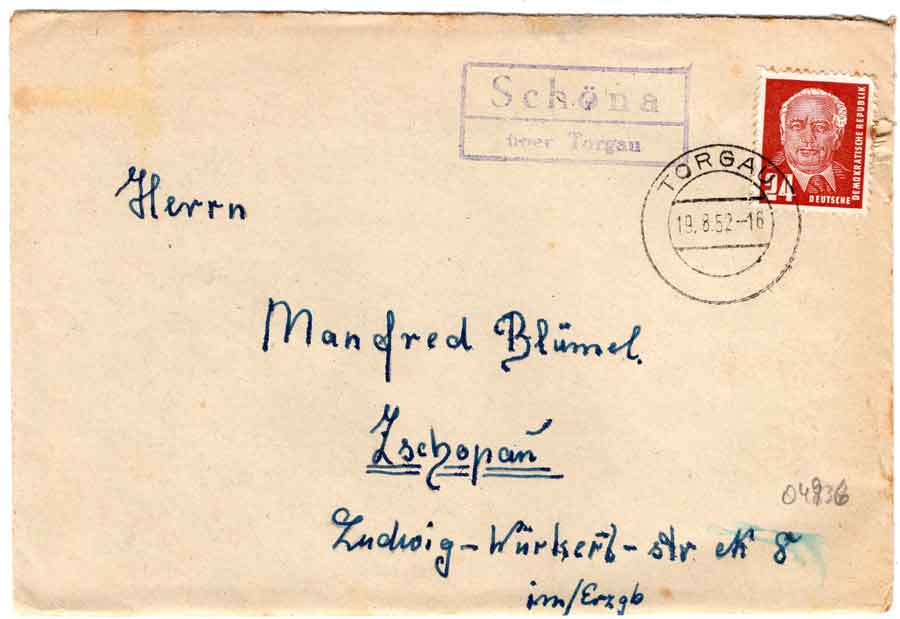 Schöna
über Torgau
TORGAU
19.8.52-16
24
DEUTSCHE
DEMOKRATISCHE REPUBLIK
Herrn
Manfred Blümel.
Zschopau
Ludwig-Würkert-str № 8
im/Erzgb
04936